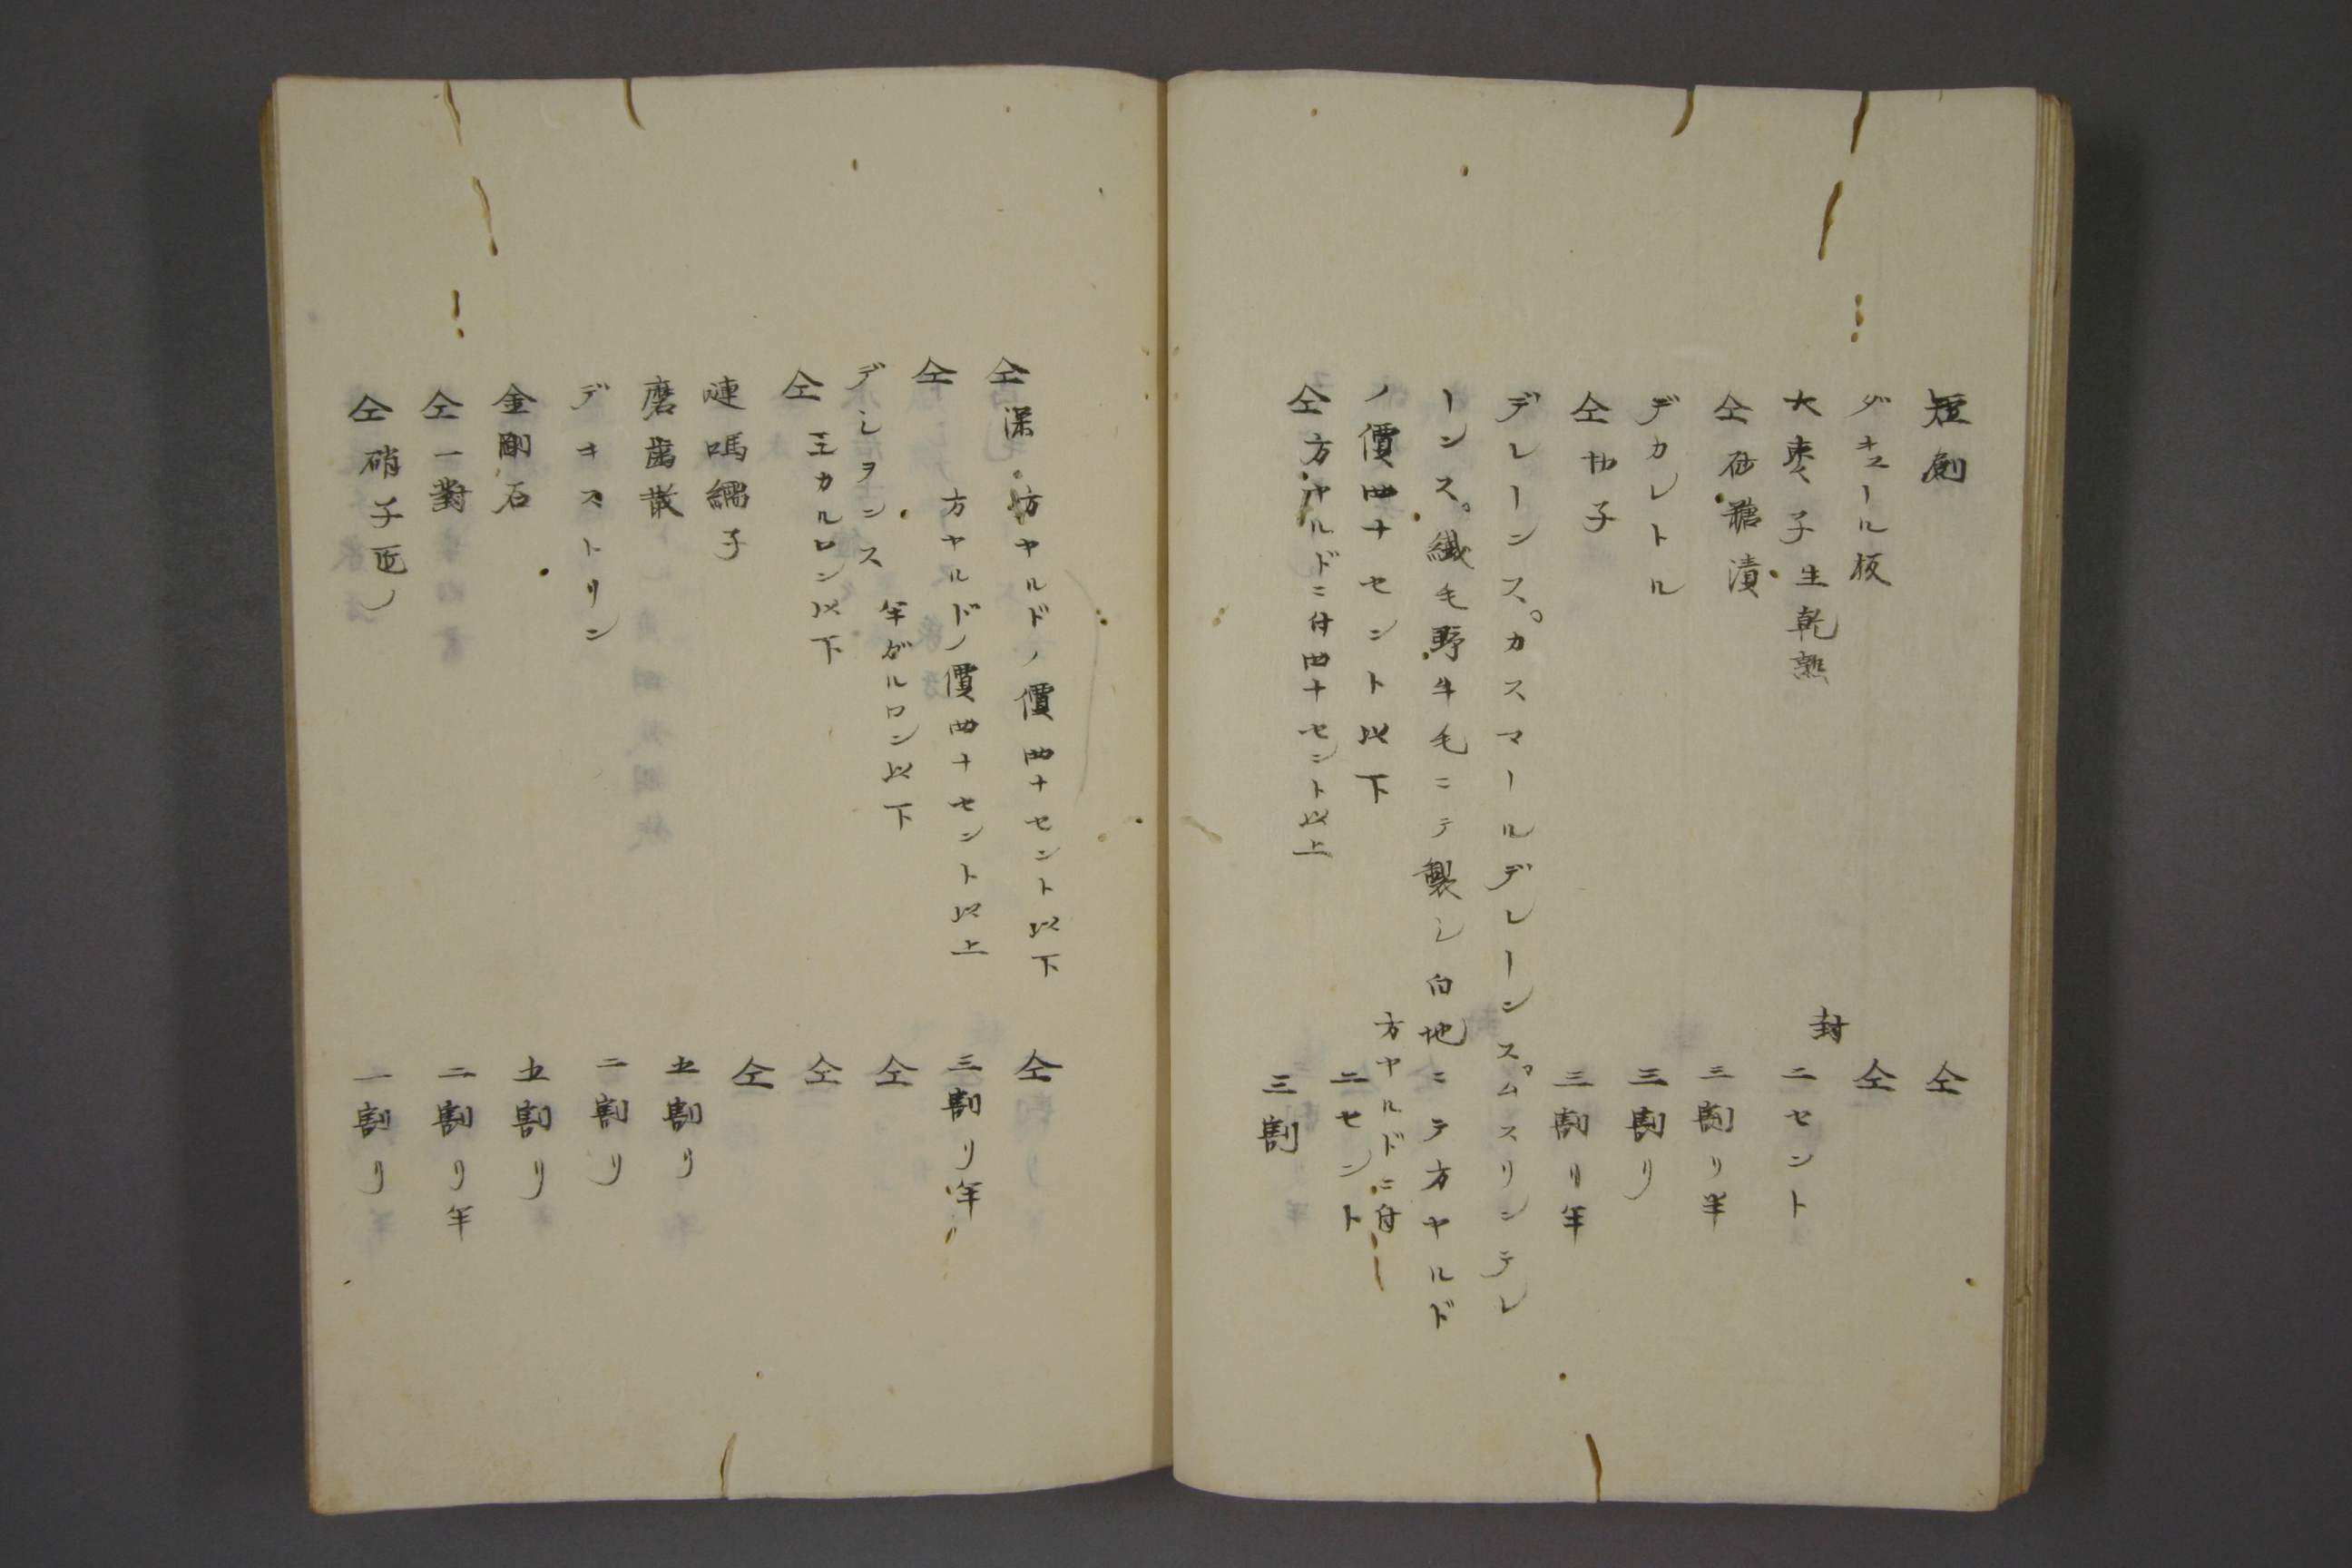 短劍　仝
ダキユール板　仝
大棗子生乾熟　封二セント
仝砂糖漬　三割リ半
デカレトル　三割リ
仝 子　三割リ半
デレーンス。カスマールデレーンス。ムスリンデレ
ーンス。繊毛野牛毛ニテ製シ白地ニテ方ヤルド
ノ價四十セント以下　方ヤルドニ付二セント
仝方ヤルドニ付四十セント以上　三割
仝深 方ヤルドノ價四十セント以下　仝
仝 方ヤルドノ價四十セント以上　三割リ半
デシヲンス 半ガルロン以下　仝
仝 三カルロン以下　仝
連嗎繻子　仝
磨歯散　五割リ
デキストリン　二割リ
金剛石　五割リ
仝一對　二割リ半
仝硝子 　一割リ